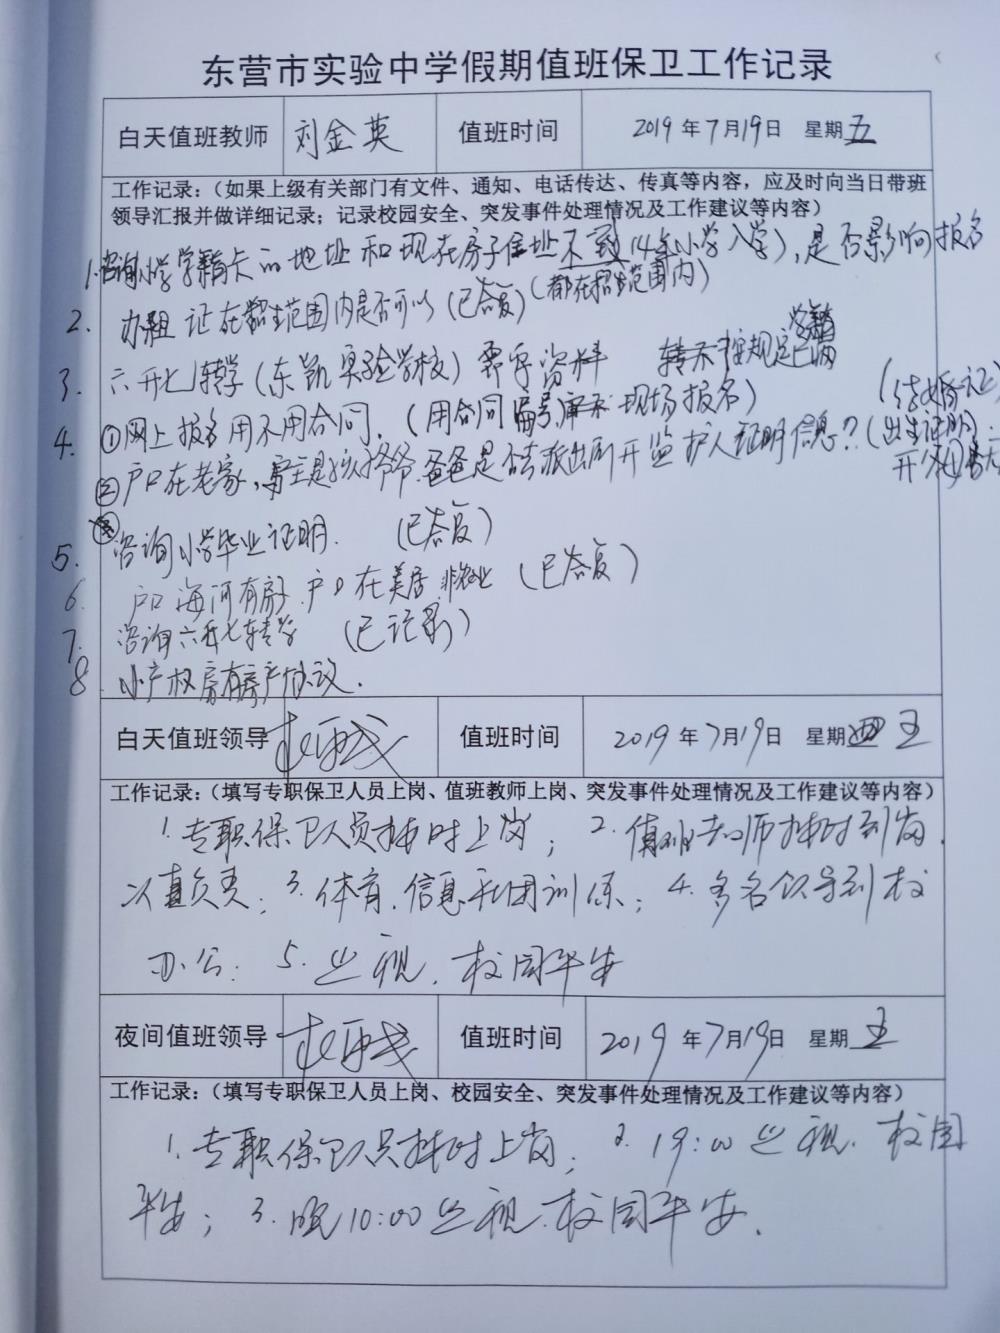 东营市实验中学假期值班保卫工作记录
白天值班教师 刘金英 值班时间 2019年7月19日 星期五
工作记录:(如果上级有关部门有文件、通知、电话传达、传真等内容,应及时向当日带班
领导汇报并做详细记录;记录校园安全、突发事件处理情况及工作建议等内容)
1.咨询小学学籍卡的地址和现在房子住址不一致(14年小学入学),是否影响报名
(都在招生范围内)
2. 办租证在招生范围内是否可以(已答复)
学籍
3. 六升七转学(东凯实验学校)需要资料 按规定
(结婚证)
4. ①网上报名用不用合同.(用合同编号 现场报名)
②户口在老家,房主是孩子爷爷.爸爸是否去派出所开监护人证明信息?(出生证明
5. 咨询小学毕业证明. (已答复)
6. 户口海河有房.户口在美居.非农业(已答复)
7. 咨询六升七转学 (已记录)
8. 小产权房有房产协议.
白天值班领导 值班时间 2019年7月19日 星期 五
工作记录:(填写专职保卫人员上岗、值班教师上岗、突发事件处理情况及工作建议等内容)
1.专职保卫人员按时上岗;2.值班老师按时到岗.
认真负责;3.体育.信息 团训练;4.多名领导到校
办公;5.巡视.校园平安
夜间值班领导 值班时间 2019年7月19日 星期五
工作记录:(填写专职保卫人员上岗、校园安全、突发事件处理情况及工作建议等内容)
1.专职保卫人员按时上岗;2.19:00巡视.校园
平安;3.晚10:00巡视.校园平安.